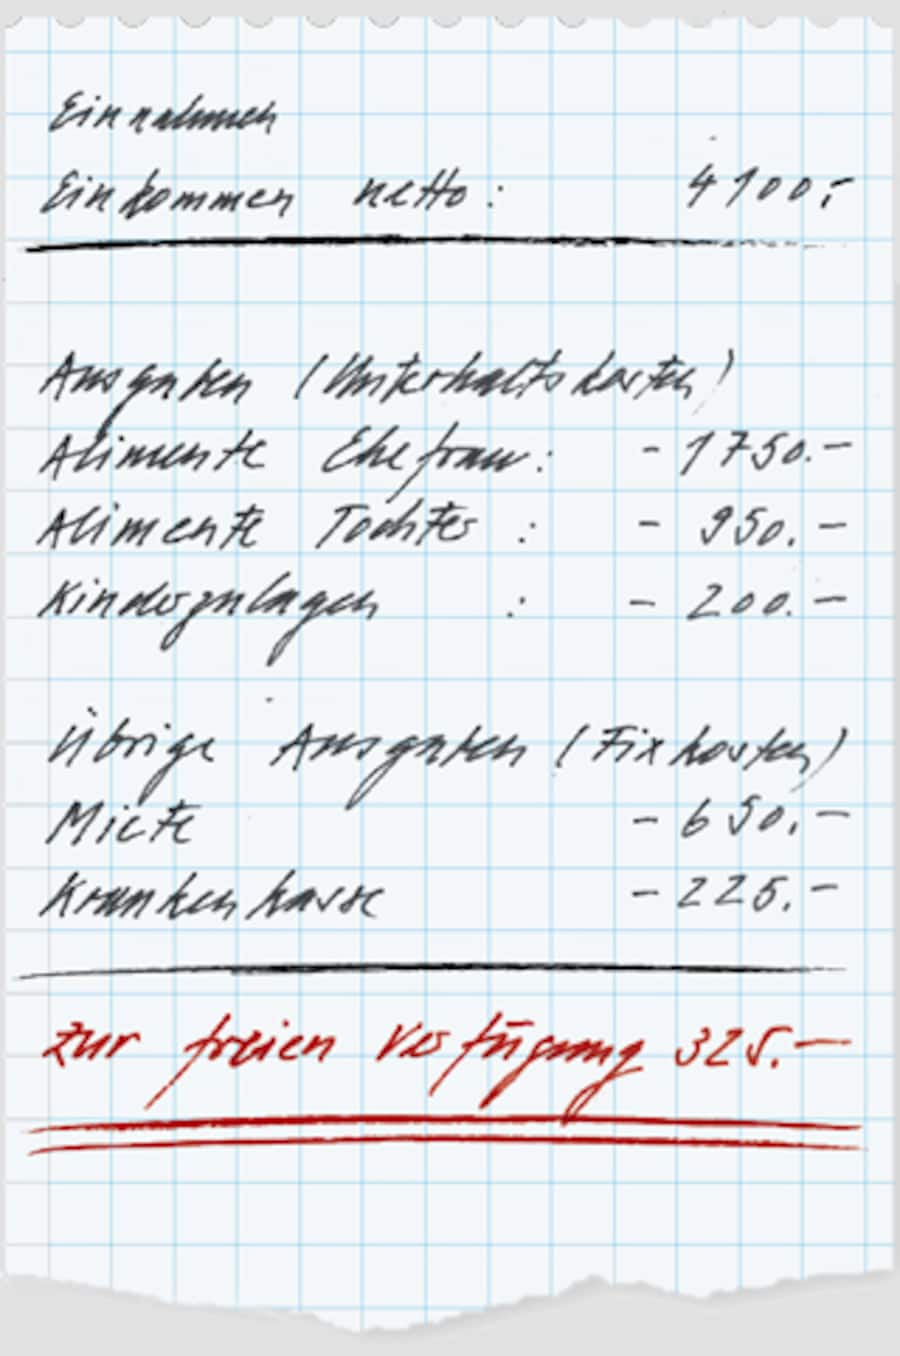 Einnahmen
Einkommen netto: 4100.-
Ausgaben (Unterhaltskosten)
Alimente Ehefrau: - 1750.-
Alimente Tochter : - 950.-
Kinderzulagen : - 200.-
Übrige Ausgaben (Fixkosten)
Miete - 650.-
Krankenkasse - 225.-
Zur freien Verfügung 325.-